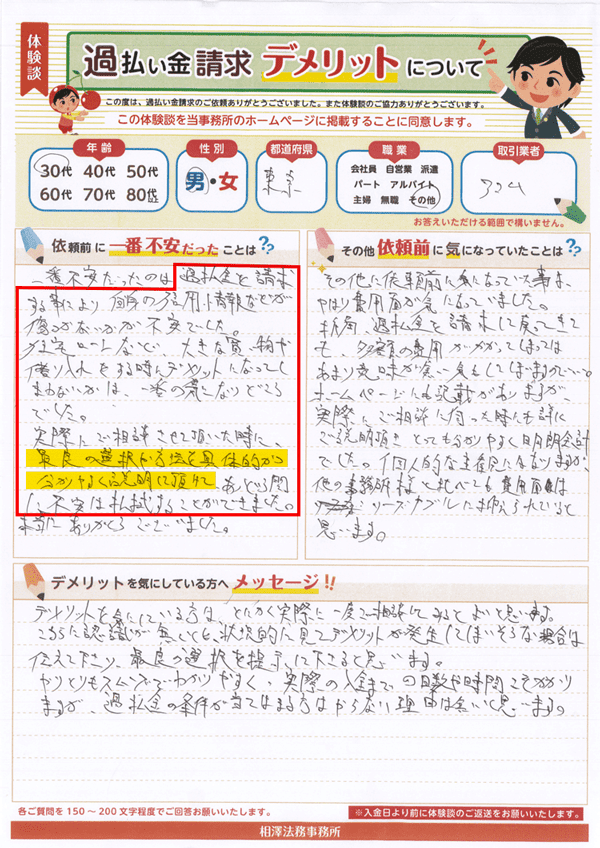 体験談
過払い金請求 デメリットについて
この度は、過払い金請求のご依頼ありがとうございました。また体験談のご協力ありがとうございます。
この体験談を当事務所のホームページに掲載することに同意します。
年齢 性別 都道府県 職業 取引業者
30代 40代 50代
60代 70代 80代以上
男・女
東京
会社員 自営業 派遣
パート アルバイト
主婦 無職 その他
アコム
お答えいただける範囲で構いません。
依頼前に一番不安だったことは??
一番不安だったのは過払金を請求
する事により自身の信用情報などが
傷つかないかが不安でした。
住宅ローンなど、大きな買い物や
借り入れをする時にデメリットになってし
まわないかは、一番の気になりどころ
でした。
実際にご相談させて頂いた時に、
最良の選択や方法を具体的かつ
分かりやすく説明して頂けて、あという間
に不安は払拭することができました。
本当にありがとうございました。
その他依頼前に気になっていたことは?
その他に依頼前に気になっていた事は、
やはり費用面が気になっていました。
折角、過払金を請求して戻ってきて
も、多額の費用がかかってしまっては
あまり意味が無い気もしてしまうので…。
ホームページにも記載がありますが、
実際にご相談に行った時にも詳しく
ご説明頂き とっても分かりやすく明朗会計
でした。個人的な主観になりますが、
他の事務所様と比べても費用面は
リーズナブルに抑えられていると
思います。
デメリットを気にしている方へメッセージ!!
デメリットを気にしている方は、とにかく実際に一度ご相談してみるとよいと思います。
こちらに認識が無いことも、状況的に見てデメリットが発生してしまいそうな場合は
伝えて下さり、最良の選択を提示して下さると思います。
やりとりもスムーズでわかりやすく、実際の入金までの日数や時間こそかかり
ますが、過払金の条件が当てはまる方はやらない理由は無いと思います。
各ご質問を150〜200文字程度でご回答お願いいたします。
※入金日より前に体験談のご返送をお願いいたします。
相澤法務事務所